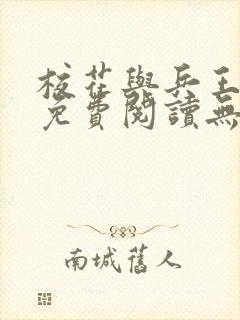 校花與兵王
免費閱讀無
南城舊人